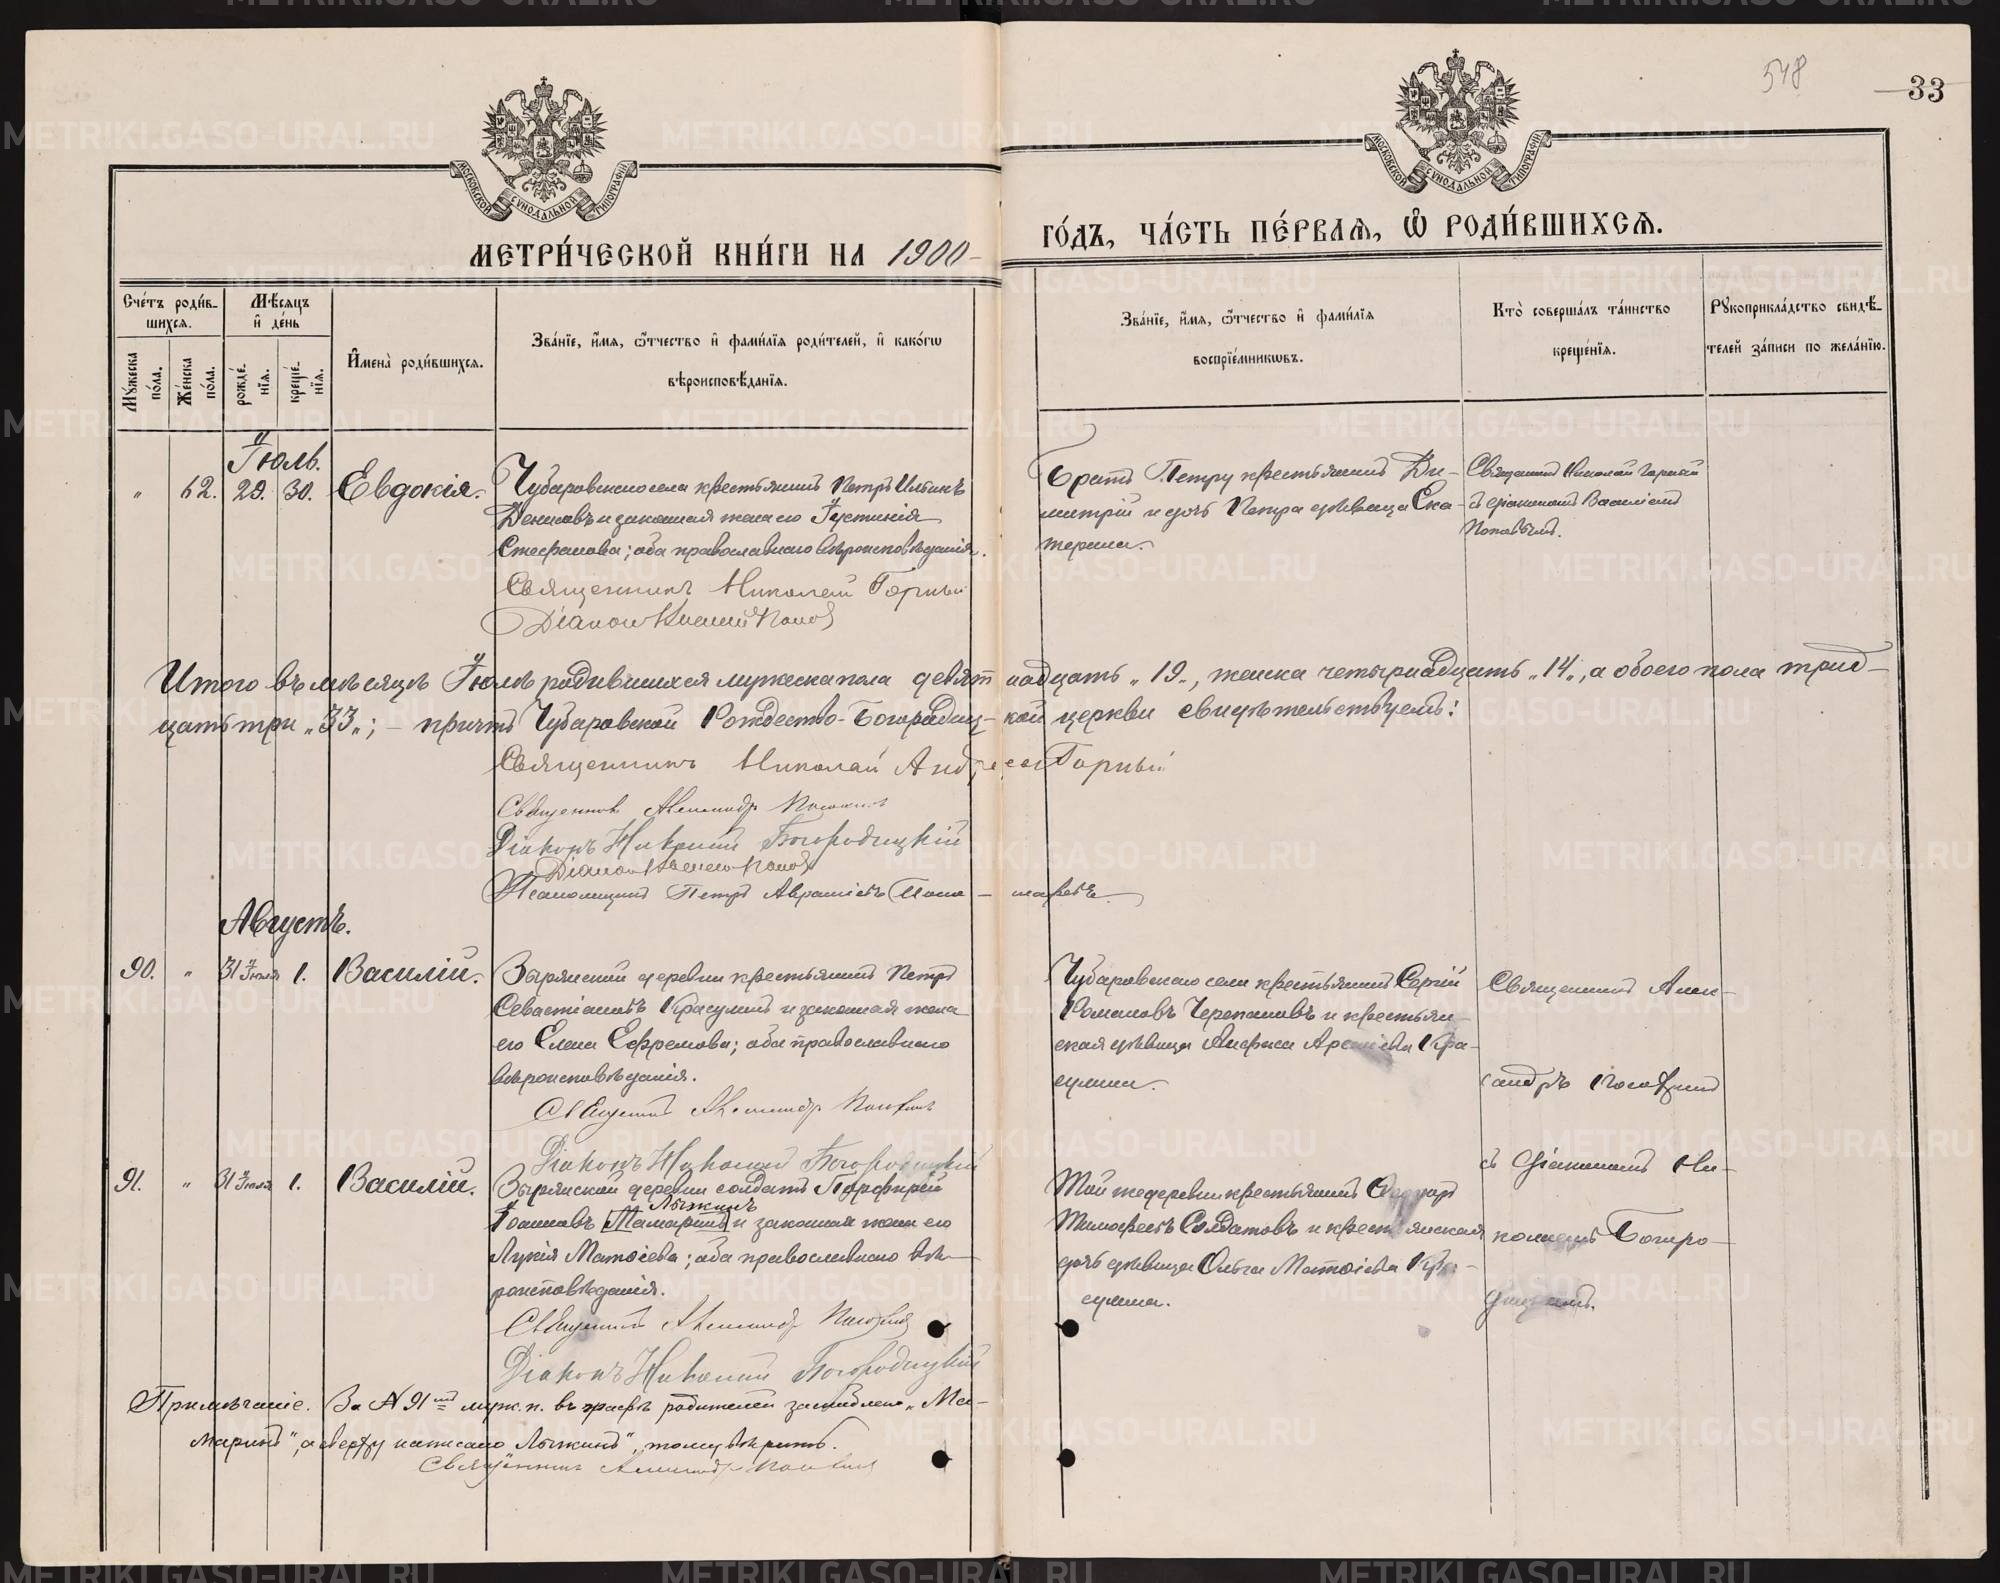 548
33
МОСКОВСКОЙ СѴНОДАЛЬНОЙ ТИПОГРАФІИ
МОСКОВСКОЙ СѴНОДАЛЬНОЙ ТИПОГРАФІИ
МЕТРИ́ЧЕСКОЙ КНИ́ГИ НА 1900
ГО́ДЪ, ЧА́СТЬ ПЕ́РВАѦ, Ѡ҆ РОДИ́ВШИХСѦ.
Сче́тъ роди́в-
шихся.
Мꙋжеска
по́ла.
Же́нска
по́ла.
Мѣ́сяцъ
и҆ де́нь
рожде́-
нїя.
креще́-
нїя.
И҆мена̀ роди́вшихся.
Зва́нїе, и҆́мя, ѻ҆́тчество и҆ фами́лїя роди́телей, и҆ како́гѡ
вѣроисповѣ́данїя.
Зва́нїе, и҆́мя, ѻ҆́тчество и҆ фами́лїя
воспрїе́мникѡвъ.
Кто̀ соверша́лъ та́инство
креще́нїя.
Рꙋкоприкла́дство свидѣ́-
телей за́писи по жела́нїю.
Іюль.
„ 62. 29. 30. Евдокія.
Чубаровскаго села крестьянинъ Петръ Ильинъ
Денисовъ и законная жена его Іустинія
Стефанова; оба православнаго вѣроисповѣданія.
Священникъ Николай Горный
Діаконъ Василій Поповъ
Братъ Петру крестьянинъ Ди-
митрій и дочь Петра дѣвица Ека-
терина.
Священникъ Николай Горный
съ діакономъ Василіемъ
Поповымъ.
Итого въ мѣсяцѣ Іюлѣ родившихся мужеска пола девятнадцать „19„, женска четырнадцать „14„, а обоего пола трид-
цать три „33„; – причтъ Чубаровской Рождество-Богородицкой церкви свидѣтельствуемъ:
Священникъ Николай Андреевъ Горный
Священникъ Александръ
Діаконъ Николай Богородицкій
Діаконъ Василій Поповъ
Псаломщикъ Петръ
Августъ.
90. „ 31 Іюля 1. Василій.
Зырянской деревни крестьянинъ Петръ
Севастіановъ Красулинъ и законная жена
его Елена Ефремова; оба православнаго
вѣроисповѣданія.
Священникъ Александръ
Діаконъ Николай Богородицкій
Чубаровскаго села крестьянинъ Сергій
Романовъ Черепановъ и крестьян-
ская дѣвица Анфиса Арсеніева Кра-
сулина.
Священникъ Алек-
сандръ
съ діакономъ Ни-
колаемъ Богоро-
дицкимъ.
91. „ 31 Іюля 1. Василій.
Зырянской деревни солдатъ Порфирій
Лыжинъ
Іоанновъ [Мамаринъ] и законная жена его
Лукія Матѳіева; оба православнаго вѣ-
роисповѣданія.
Священникъ Александръ
Діаконъ Николай Богородицкій
Той же деревни крестьянинъ
Тимофеевъ Солдатовъ и крестьянская
дочь дѣвица Ольга Матѳіева Кра-
сулина.
Примѣчаніе. За № 91мъ муж. п. въ графѣ родителей зачеркнуто „Ма-
маринъ", а сверху написано „Лыжинъ", тому вѣрить.
Священникъ Александръ